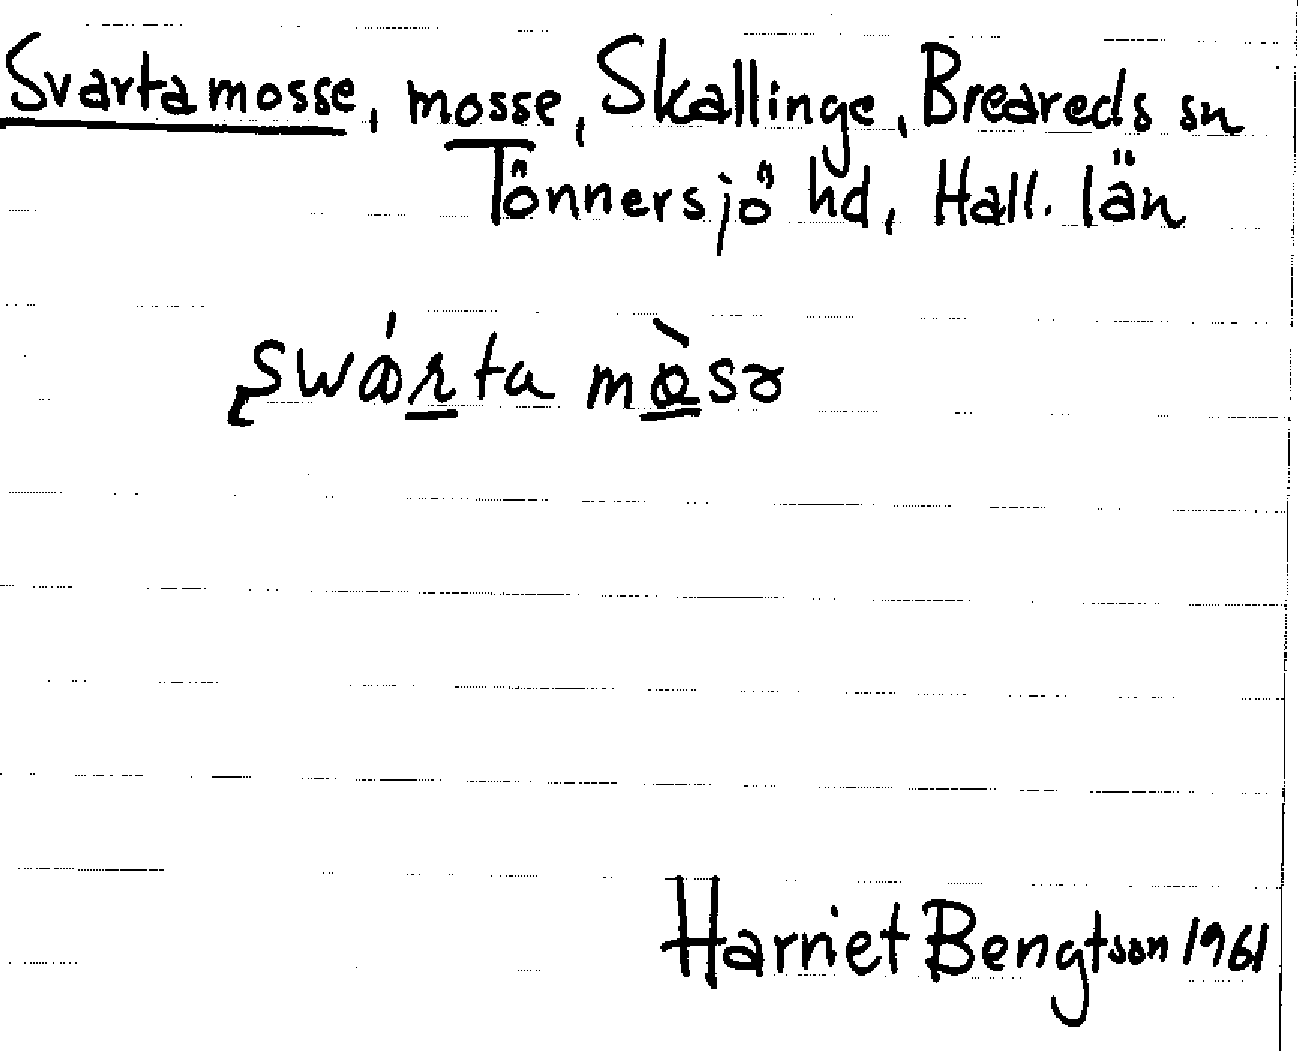 Svarta mosse, mosse, Skallinge, Breareds sn
Tönnersjö hd, Hall. län
swárta mòsə
Harriet Bengtson 1961